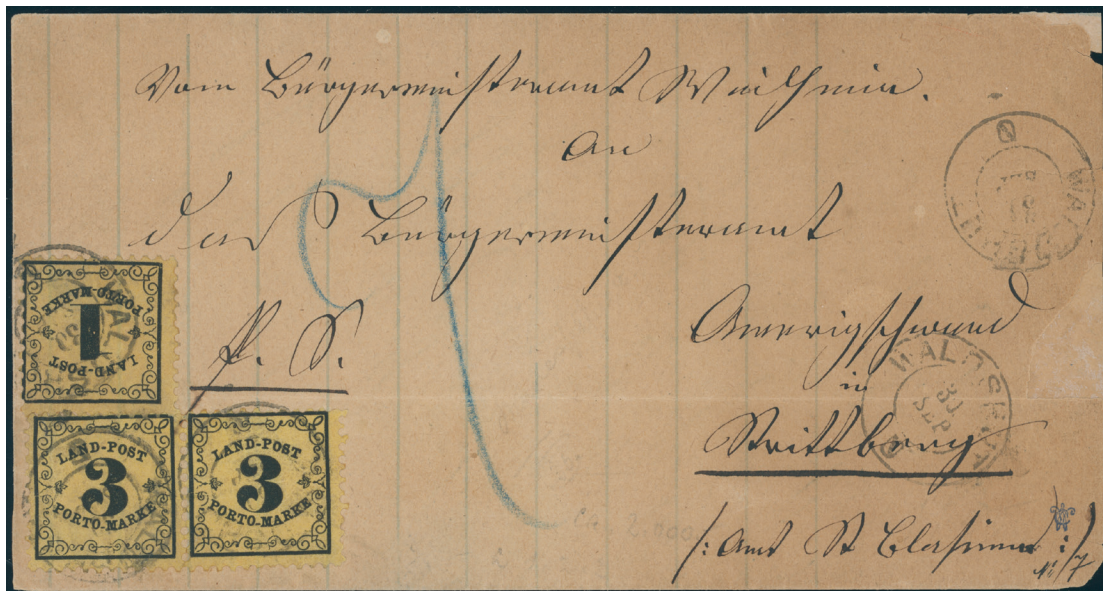 Vom Bürgermeisteramt Weilheim.
An
das Bürgermeisteramt
P. S.
Amrigschwand
in
Strittberg
/: Amt St Blasien :/
7
WALDSHUT
WALDSHUT
30
SEP
1
LAND-POST
PORTO-MARKE
LAND-POST
3
PORTO-MARKE
LAND-POST
3
PORTO-MARKE